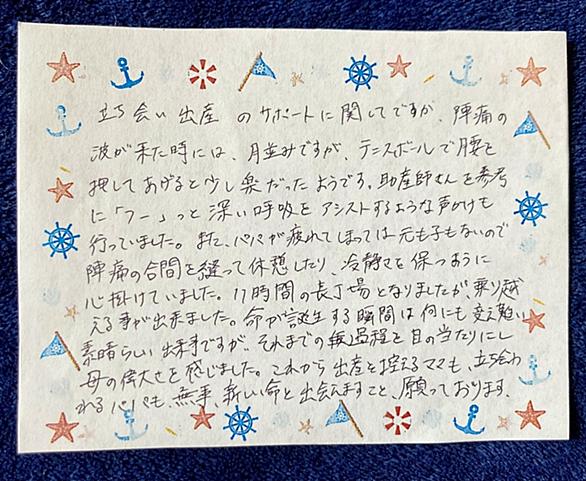 立ち会い出産 のサポートに関してですが、陣痛の
波が来た時には、月並みですが、テニスボールで腰を
押してあげると少し楽だったようです。助産師さんを参考
に「フー」っと深い呼吸をアシストするような声かけも
行っていました。また、パパが疲れてしまっては元も子もないので
陣痛の合間を縫って休憩したり、冷静さを保つように
心掛けていました。17時間の長丁場となりましたが、乗り越
える事が出来ました。命が誕生する瞬間は何にも変え難い
素晴らしい出来事ですが、それまでの過程を目の当たりにし
母の偉大さを感じました。これから出産を控えるママも、立ち会わ
れるパパも、無事、新しい命と出会えますこと、願っております。